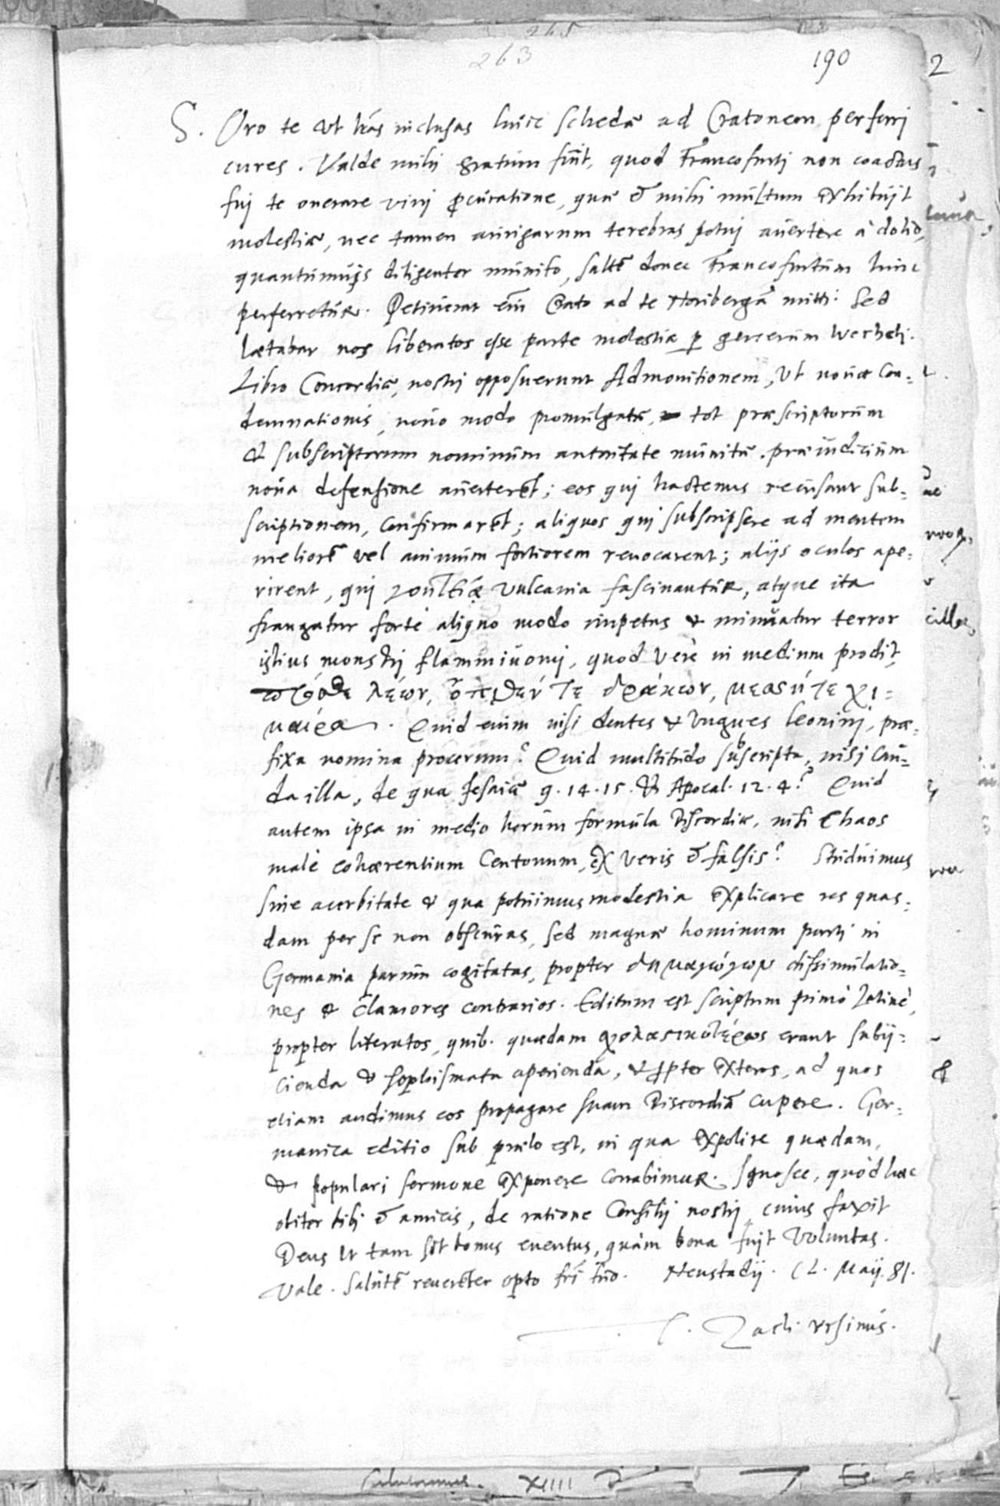 265
263
190
2
S. Oro te ut has inclusas huic schedæ ad Cratonem perferri
cures. Valde mihi gratum fuit, quod Francofurti non coactus
fui te onerare vini procuratione, quæ & mihi multum exhibuit
molestiæ, nec tamen aurigarum terebras potui avertere à dolio,
quantumvis diligenter munito, saltē donec Francofurtum hinc
perferretur. Petiverat enī Crato ad te Noribergā mitti: Sed
lætabar nos liberatos esse parte molestiæ p generum Wecheli.
Libro Concordiæ, nostri opposuerunt Admonitionem, Ut novæ Con-
demnationis, novo modo promulgatæ, tot præscriptorum
& subscriptorum nominum autoritate munitæ, præiudicium
nova defensione averterēt; eos qui hactenus recusant sub-
scriptionem, confirmarēt; aliquos qui subscripsere ad mentem
meliorē vel animum fortiorem revocarent; alijs oculos ape-
rirent, qui Vulcania fascinantur, atque ita
frangatur fortè aliquo modo impetus & minuatur terror
istius monstri flammivomi, quod verè in medium prodit,
πρόσθε λέων, ὄπιθέν τε δράκων, μέσση τε χί-
μαιρα. Quid enim nisi dentes & ungues leonini, præ-
fixa nomina procerum? Quid multitudo subscripta, nisi cau-
da illa, de qua Jesaiæ 9.14.15. & Apocal. 12.4? Quid
autem ipsa in medio horum formula Discordiæ, nisi Chaos
malè cohærentium Centonum, ex veris & falsis? Studuimus
sine acerbitate & qua potuimus modestia explicare res quas-
dam per se non obscuras, sed magnæ hominum parti in
Germania parum cogitatas, propter δημαγωγῶν dissimulatio-
nes & clamores contrarios. Editum est scriptum primò Latinè,
propter literatos, quib. quædam σχολαστικωτέρως erant subij-
cienda & sophismata aperienda, & ppter exteros, ad quos
etiam audimus eos propagare suam Discordiā cupere. Ger-
manica editio sub prælo est, in qua expolire quædam,
& populari sermone exponere conabimur. Ignosce, quòd hæc
obiter tibi & amicis, de ratione Consilij nostri, cuius faxit
Deus ut tam sit bonus eventus, quàm bona fuit Voluntas.
Vale. Salutē reverēter opto fri tuo. Neustadij. Maij. 81.
T. Zach. Ursinus.
XIIII